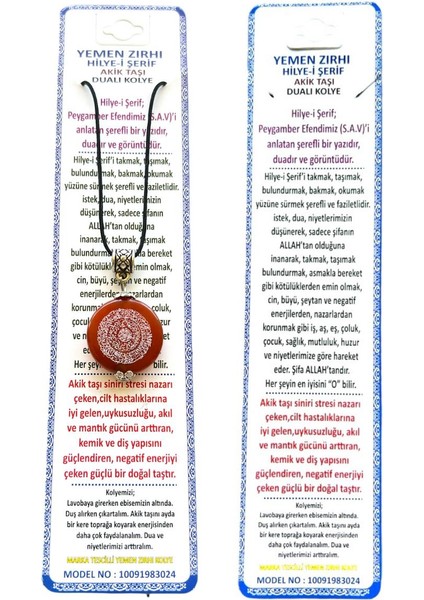 YEMEN ZIRHI
HİLYE-İ ŞERİF
AKİK TAŞI
DUALI KOLYE
Hilye-i Şerif;
Peygamber Efendimiz (S.A.V)'i
anlatan şerefli bir yazıdır,
duadır ve görüntüdür.
Hilye-i Şerif'i takmak, taşımak,
bulundurmak, bakmak, okumak
yüzüne sürmek şerefli ve faziletlidir.
istek, dua, niyetlerimizin
düşünerek, sadece şifanın
ALLAH'tan olduğuna
inanarak, takmak, taşımak
bulundurm
gibi kötülükl erden emin olmak,
cin, büyü, şeytan ve negatif
enerjilerden, nazarlardan
korunmak
çocuk
ve niy
eder.
Her şeyin bilir.
Akik taşı siniri stresi nazarı
çeken,cilt hastalıklarına
iyi gelen,uykusuzluğu, akıl
ve mantık gücünü arttıran,
kemik ve diş yapısını
güçlendiren, negatif enerjiyi
çeken güçlü bir doğal taştır.
Kolyemizi;
Lavobaya girerken ebisemizin altında.
Duş alırken çıkartalım. Akik taşını ayda
bir kere toprağa koyarak enerjisinden
daha çok faydalanalım. Dua ve
niyetlerimizi arttıralım.
MARKA TESCİLLİ YEMEN ZIRHI KOLYE
MODEL NO : 10091983024
YEMEN ZIRHI
HİLYE-İ ŞERİF
AKİK TAŞI
DUALI KOLYE
Hilye-i Şerif;
Peygamber Efendimiz (S.A.V)'i
anlatan şerefli bir yazıdır,
duadır ve görüntüdür.
Hilye-i Şerif'i takmak, taşımak,
bulundurmak, bakmak, okumak
yüzüne sürmek şerefli ve faziletlidir.
istek, dua, niyetlerimizin
düşünerek, sadece şifanın
ALLAH'tan olduğuna
inanarak, takmak, taşımak
bulundurmak, asmakla bereket
gibi kötülüklerden emin olmak,
cin, büyü, şeytan ve negatif
enerjilerden, nazarlardan
korunmak gibi iş, aş, eş, çoluk,
çocuk, sağlık, mutluluk, huzur
ve niyetlerimize göre hareket
eder. Şifa ALLAH'tandır.
Her şeyin en iyisini "O" bilir.
Akik taşı siniri stresi nazarı
çeken,cilt hastalıklarına
iyi gelen,uykusuzluğu, akıl
ve mantık gücünü arttıran,
kemik ve diş yapısını
güçlendiren, negatif enerjiyi
çeken güçlü bir doğal taştır.
Kolyemizi;
Lavobaya girerken ebisemizin altında.
Duş alırken çıkartalım. Akik taşını ayda
bir kere toprağa koyarak enerjisinden
daha çok faydalanalım. Dua ve
niyetlerimizi arttıralım.
MARKA TESCİLLİ YEMEN ZIRHI KOLYE
MODEL NO : 10091983024